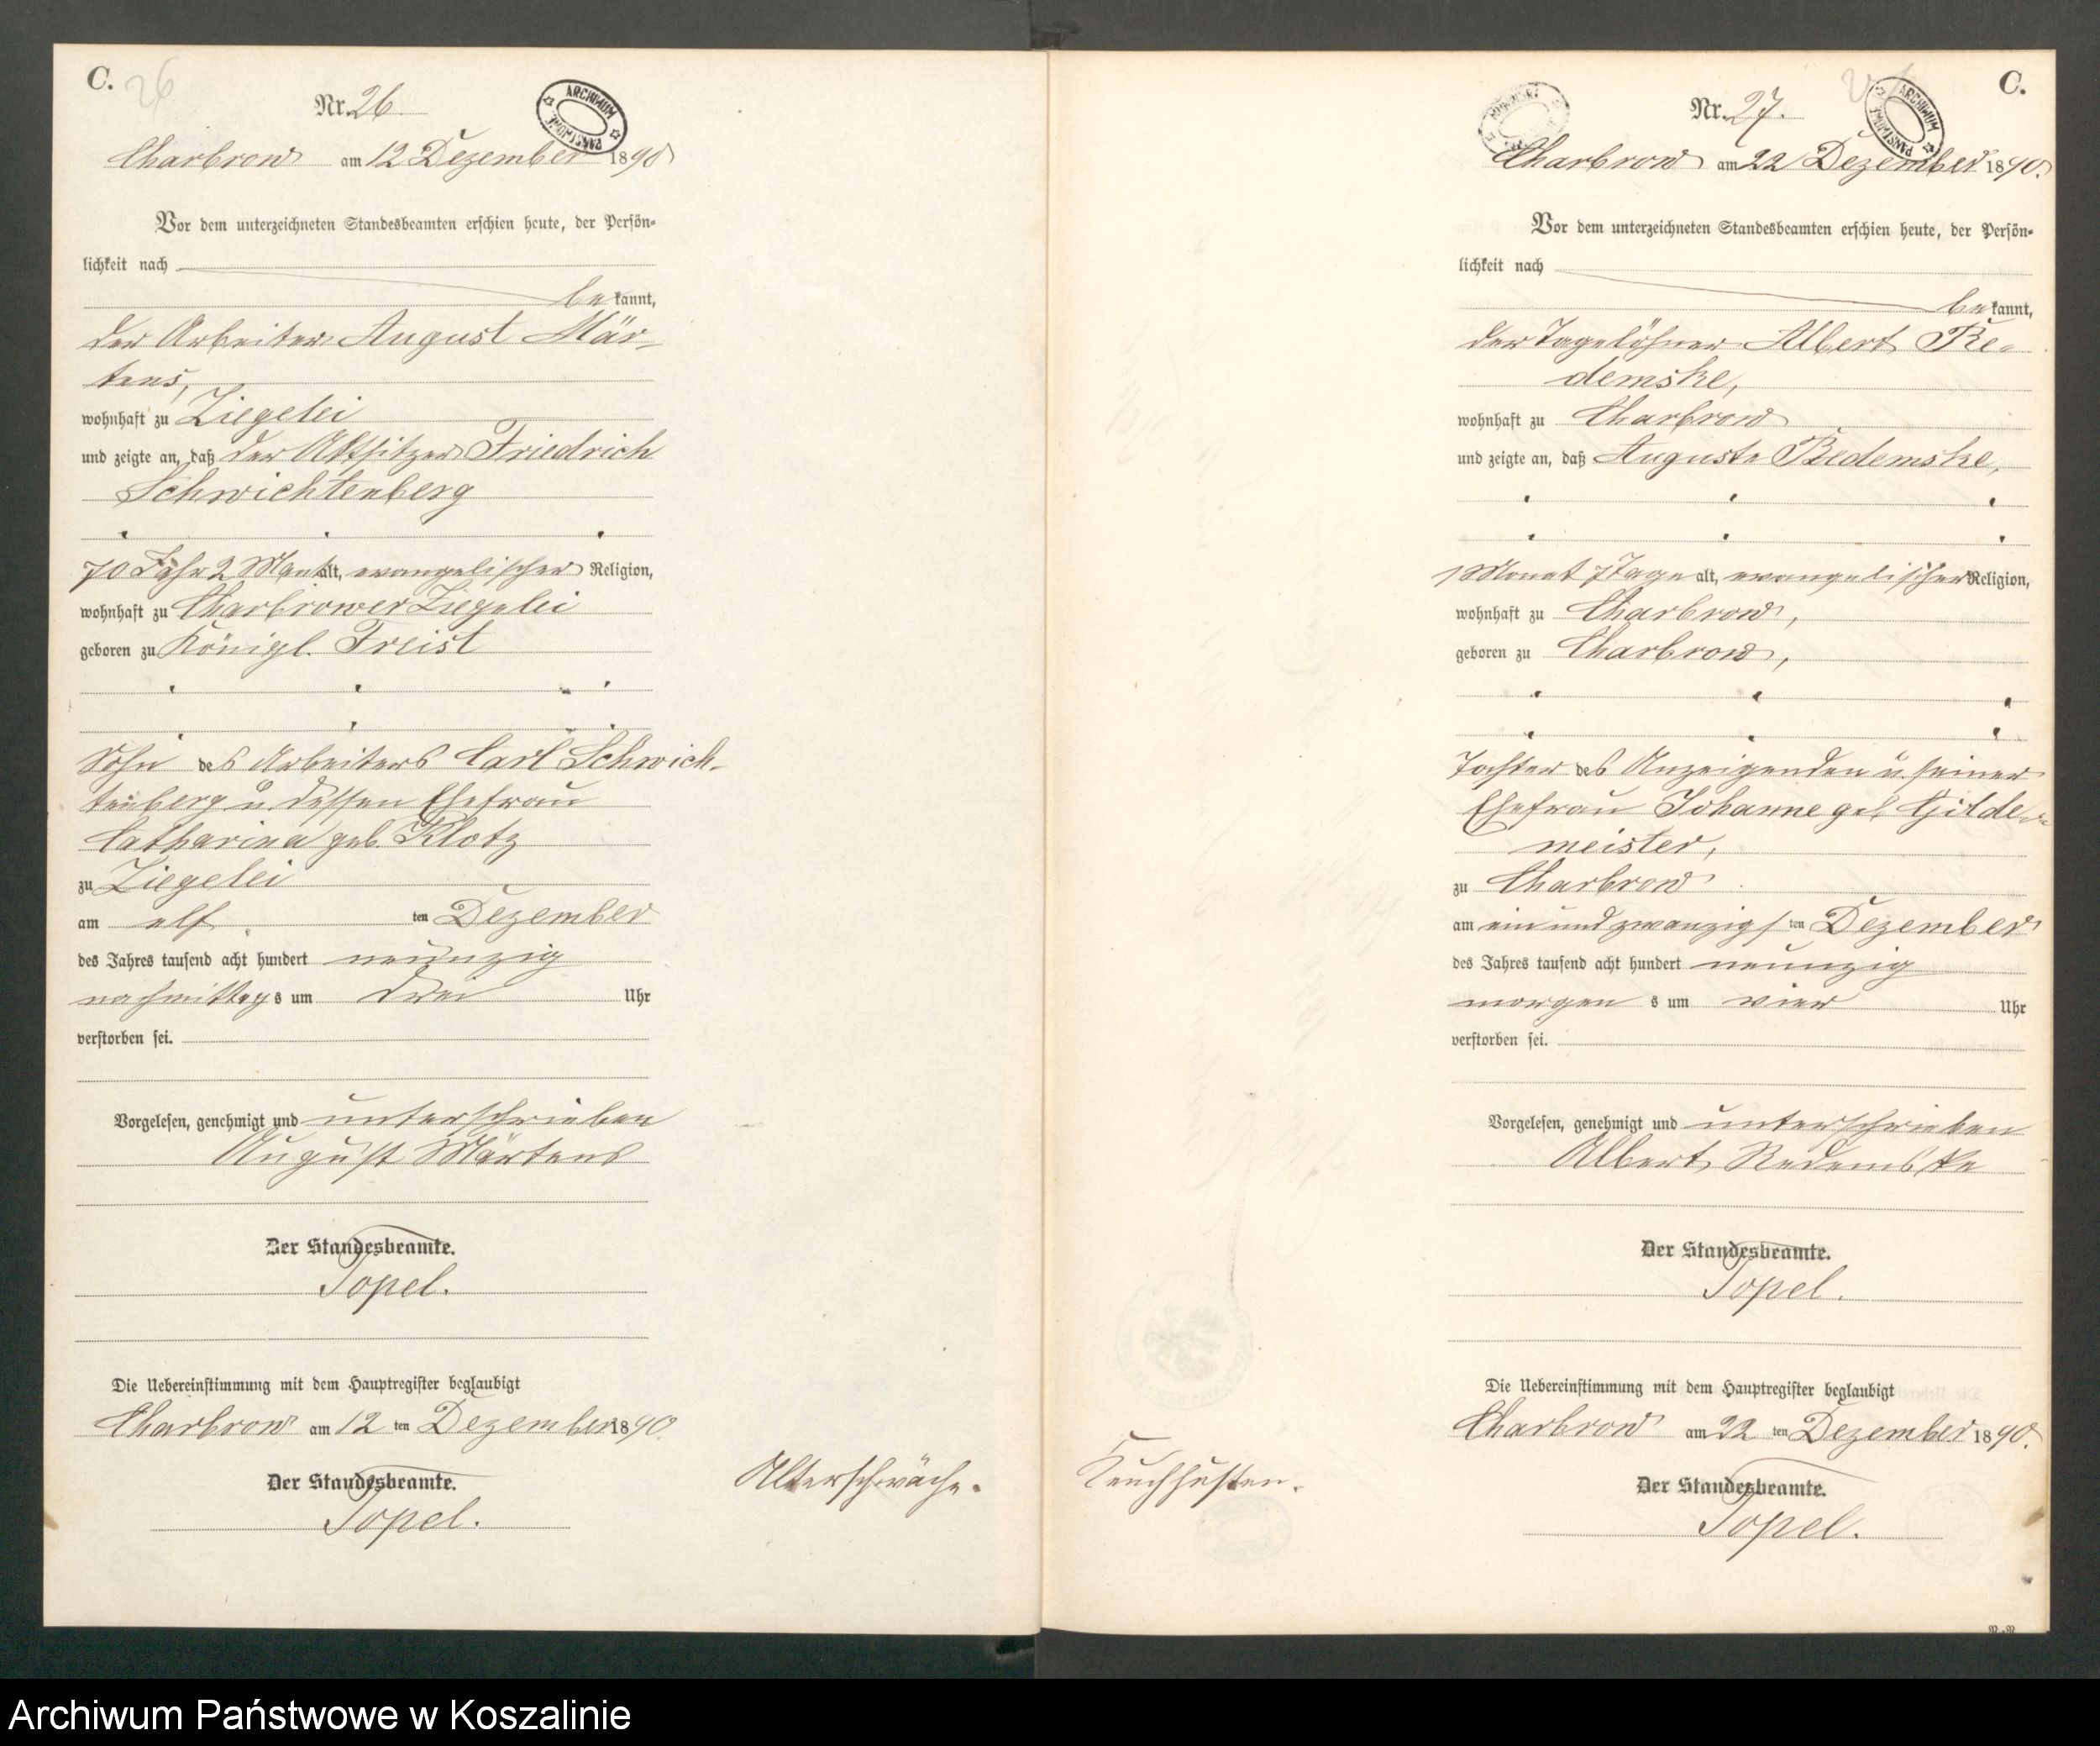 C.
26
Nr. 26.
ARCHIWUM PAŃSTWOWE
Charbrow am 12 Dezember 1890
Vor dem unterzeichneten Standesbeamten erschien heute, der Persön-
lichkeit nach
bekannt,
der Arbeiter August Mär-
tens,
wohnhaft zu Ziegelei
und zeigte an, daß der Altsitzer Friedrich
Schwichtenberg
70 Jahr 2 Monat alt, evangelischer Religion,
wohnhaft zu Charbrower Ziegelei
geboren zu Königl. Freist
Sohn des Arbeiters Carl Schwich-
tenberg u dessen Ehefrau
Catharina geb. Klotz
zu Ziegelei
am elf ten Dezember
des Jahres tausend acht hundert neunzig
nachmittags um drei Uhr
verstorben sei.
Vorgelesen, genehmigt und unterschrieben
August Märtens
Der Standesbeamte.
Topel.
Die Uebereinstimmung mit dem Hauptregister beglaubigt
Charbrow am 12 ten Dezember 1890.
Der Standesbeamte.
Topel.
Alterschwäche.
C.
Nr. 27.
ARCHIWUM PAŃSTWOWE
Charbrow am 22 Dezember 1890.
Vor dem unterzeichneten Standesbeamten erschien heute, der Persön-
lichkeit nach
bekannt,
der Tagelöhner Albert Re-
demske,
wohnhaft zu Charbrow
und zeigte an, daß Auguste Redemske,
1 Monat 7 Tage alt, evangelischer Religion,
wohnhaft zu Charbrow,
geboren zu Charbrow,
Tochter des Anzeigenden u. seiner
Ehefrau Johanne geb Gilde-
meister,
zu Charbrow
am ein und zwanzigs ten Dezember
des Jahres tausend acht hundert neunzig
morgens um vier Uhr
verstorben sei.
Vorgelesen, genehmigt und unterschrieben
Albert Redemske
Der Standesbeamte.
Topel.
Die Uebereinstimmung mit dem Hauptregister beglaubigt
Charbrow am 22 ten Dezember 1890.
Der Standesbeamte.
Topel.
Keuchhusten.
Archiwum Państwowe w Koszalinie